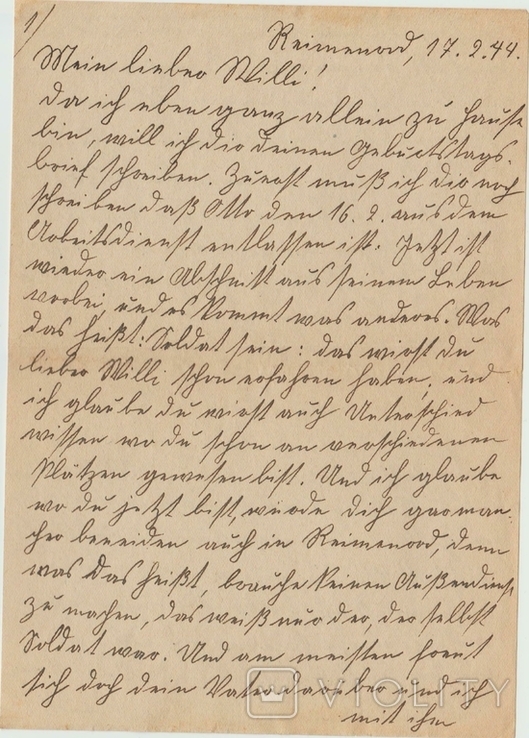 1/
Reimenrod, 17.2.44.
Mein lieber Willi!
Da ich eben ganz allein zu Hause
bin, will ich dir deinen Geburtstags-
brief schreiben. Zuerst muß ich dir noch
schreiben daß Otto den 16. 2. aus dem
Arbeitsdienst entlassen ist. Jetzt ist
wieder ein Abschnitt aus seinem Leben
vorbei, und es kommt was anderes. Was
das heißt: Soldat sein: das wirst du
lieber Willi schon erfahren haben. und
ich glaube du wirst auch Unterschied
wissen wo du schon an verschiedenen
Plätzen gewesen bist. Und ich glaube
wo du jetzt bist, würde dich gar man-
cher beneiden auch in Reimenrod, denn
was das heißt, brauche keinen Außendienst
zu machen, das weiß nur der, der selbst
Soldat war. Und am meisten freut
sich doch dein Vater darüber und ich
mit ihm
VIOLITY